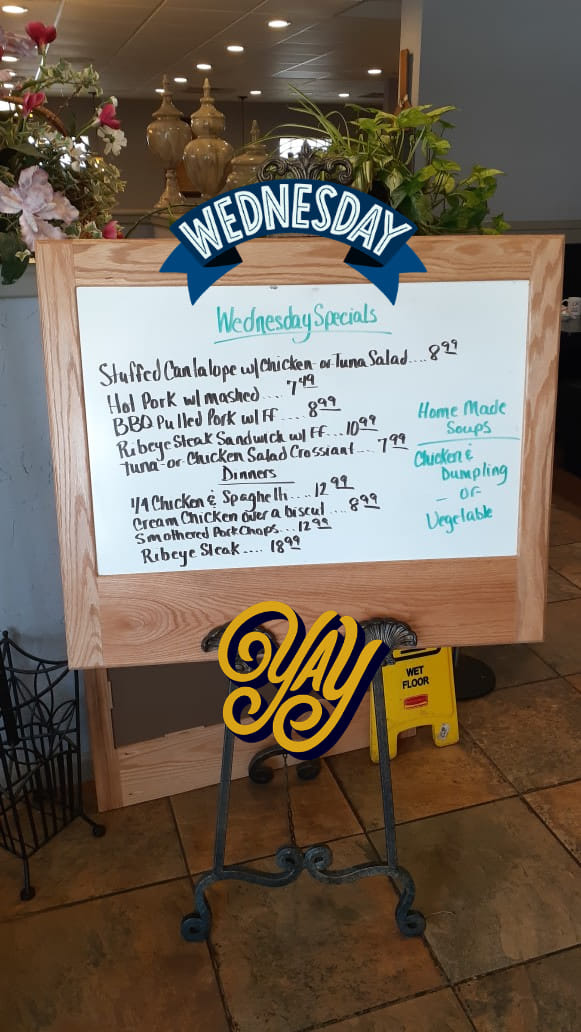 WEDNESDAY
Wednesday Specials
Stuffed Cantalope w/ Chicken or Tuna Salad.... 8.99
Hot Pork w/ mashed.... 7.49
BBQ Pulled Pork w/ FF.... 8.99
Ribeye Steak Sandwich w/ FF... 10.99
Tuna -or- Chicken Salad Crossiant... 7.99
Dinners
1/4 Chicken & Spaghetti.... 12.99
Cream Chicken over a biscut.... 8.99
Smothered Pork Chops... 12.99
Ribeye Steak.... 18.99
Home Made
Soups
Chicken &
Dumpling
- or -
Vegetable
YAY
WET
FLOOR